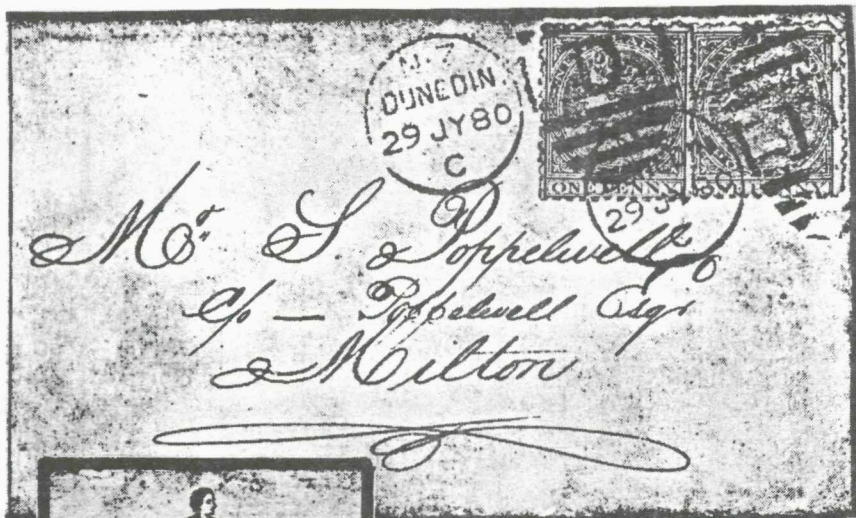 N.Z
DUNEDIN
29 JY 80
C
ONE PENNY
PENNY
29 J 80
Mr. S. Poppelwell
c/o — Poppelwell Esqr
Milton